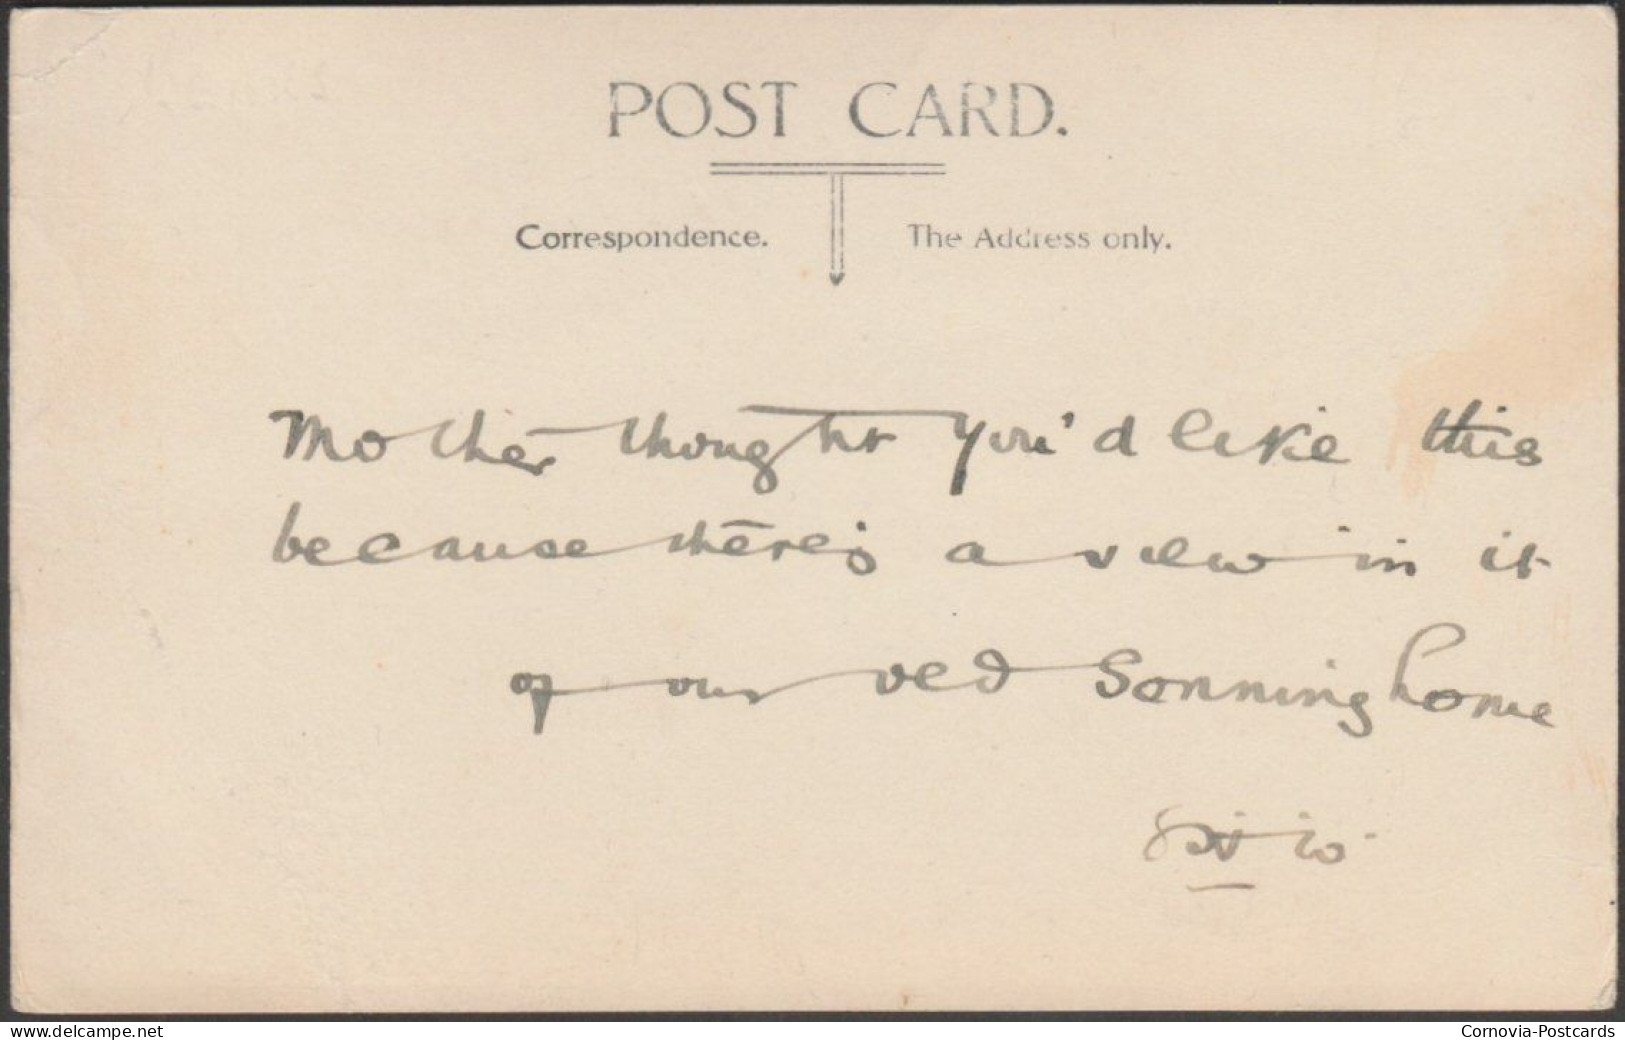 POST CARD.
Correspondence.
The Address only.
Mother thought you'd like this
because there's a view in it
of our old Sonning home
www.delcampe.net
Cornovia-Postcards